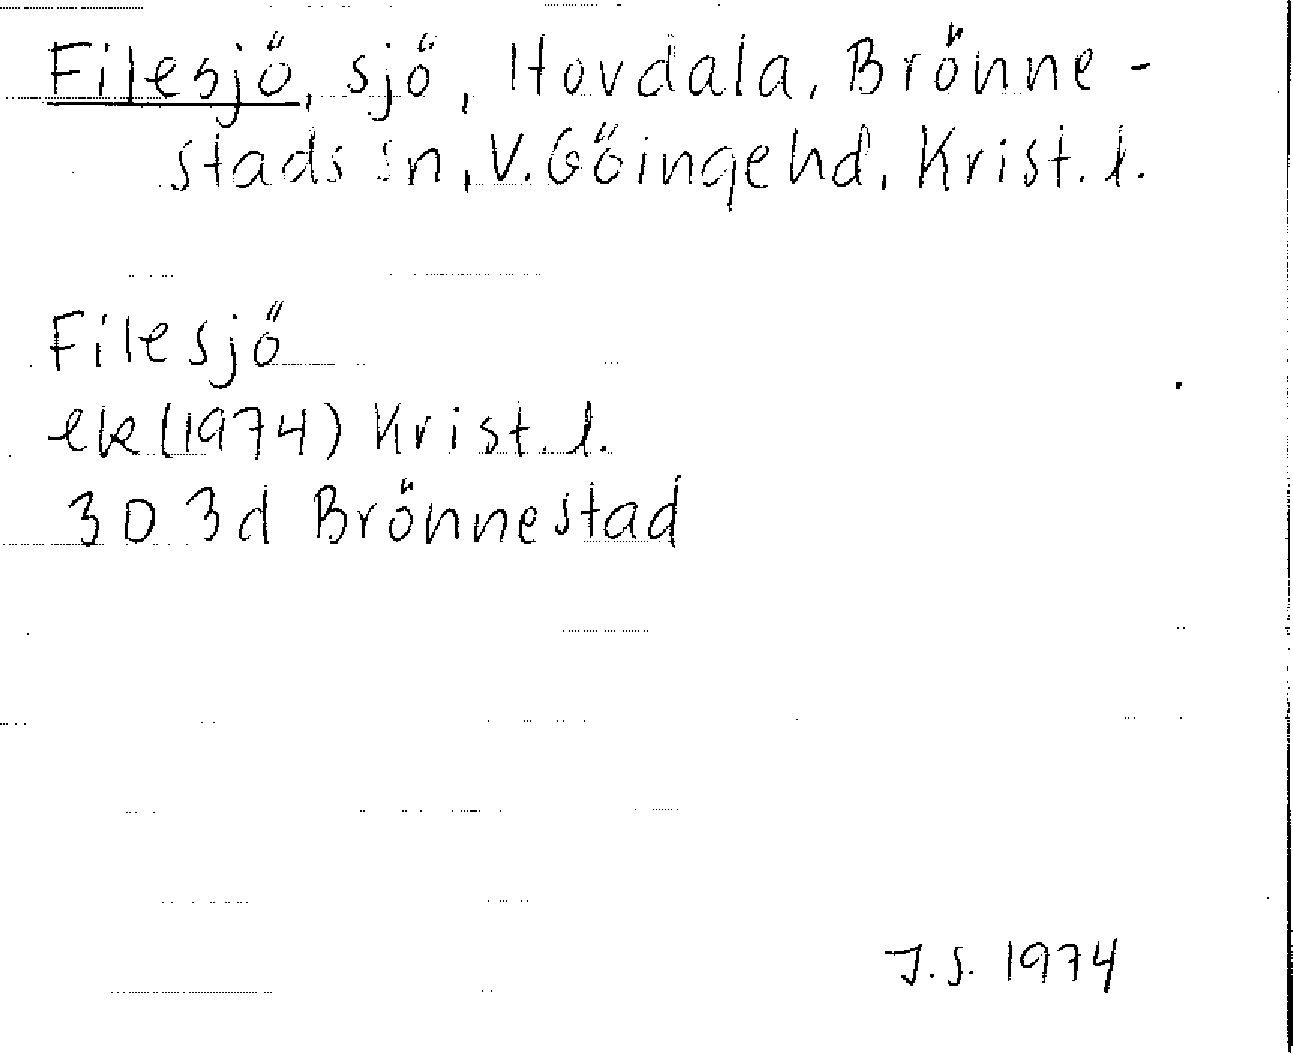 Filesjö, sjö, Hovdala, Brönne-
stads sn, V. Göingehd, Krist. l.
Filesjö
ek (1974) Krist. l.
3D 3d Brönnestad
J.S. 1974